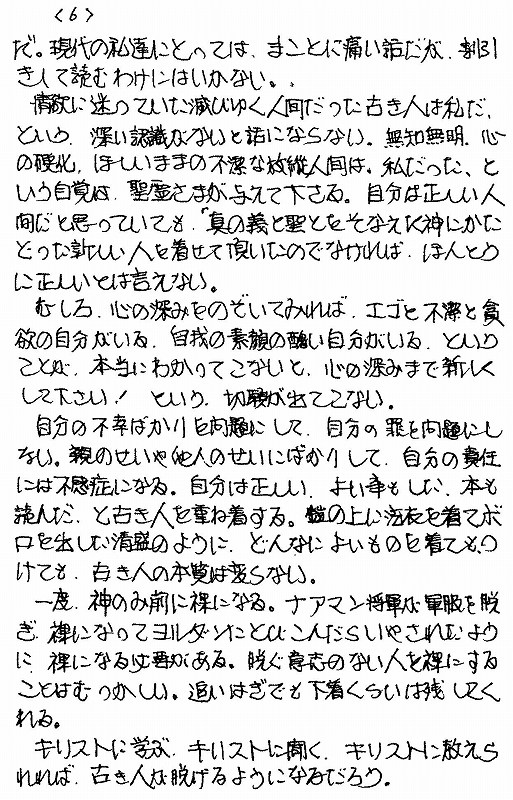 <6>
だ。現代の私達にとっては、まことに痛い話だが、割引
きして読むわけにはいかない。
情欲に迷っていた滅びゆく人間だった古き人は私だ、
という、深い認識がないと話にならない。無知無明、心
の硬化、ほしいままの不潔な放縦人間は、私だった、と
いう自覚は、聖霊さまが与えて下さる。自分は正しい人
間だと思っていても、「真の義と聖とをそなえた神にかた
どった新しい人を着せて頂いたのでなければ、ほんとう
に正しいとは言えない。
むしろ、心の深みをのぞいてみれば、エゴと不潔と貪
欲の自分がいる、自我の素顔の醜い自分がいる、という
ことが、本当にわかってこないと、心の深みまで新しく
して下さい！という、切願が出てこない。
自分の不幸ばかりを問題にして、自分の罪を問題にし
ない。親のせいや他人のせいにばかりして、自分の責任
には不感症になる。自分は正しい、よい事もした、本も
読んだ、と古き人を重ね着する。鎧の上に法衣を着てボ
ロを出した清盛のように、どんなによいものを着ても、つ
けても、古き人の本質は変らない。
一度、神のみ前に裸になる。ナアマン将軍が軍服を脱
ぎ、裸になってヨルダンにとびこんだらいやされたよう
に、裸になる必要がある。脱ぐ意志のない人を裸にする
ことはむつかしい。追いはぎでも下着くらいは残してく
れる。
キリストに学ぶ、キリストに聞く、キリストに教えら
れれば、古き人が脱げるようになるだろう。